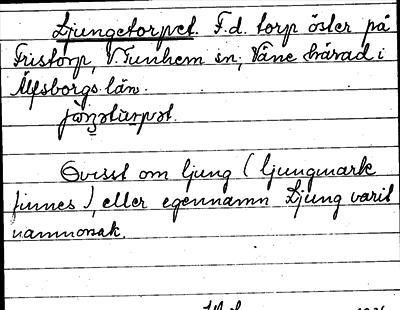 Ljungetorpet. F.d. torp öster på
Fristorp, V Tunhem sn; Väne härad i
Älfsborgs län.
Ovisst om ljung (ljungmark
finnes), eller egennamn Ljung varit
namnorsak.